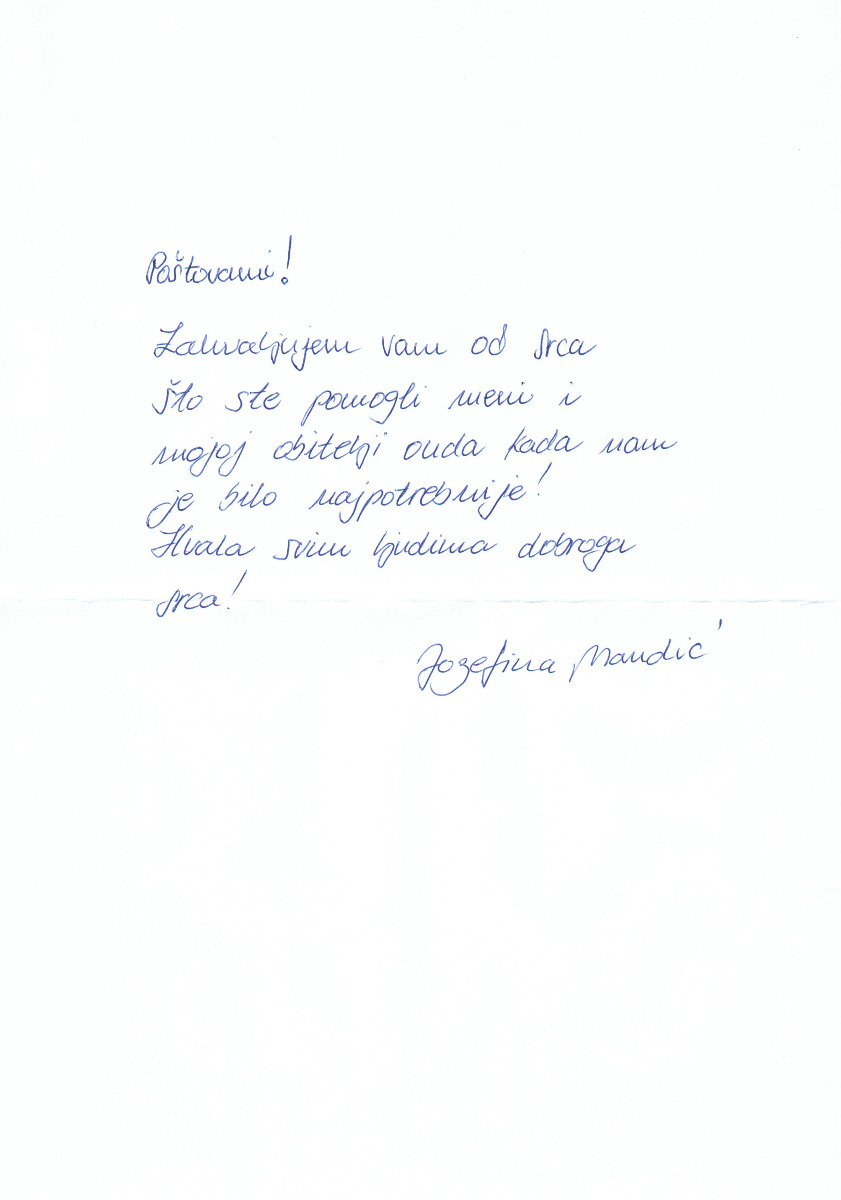 Poštovani!
Zahvaljujem vam od srca
što ste pomogli meni i
mojoj obitelji onda kada nam
je bilo najpotrebnije!
Hvala svim ljudima dobroga
srca!
Jozefina Mandić